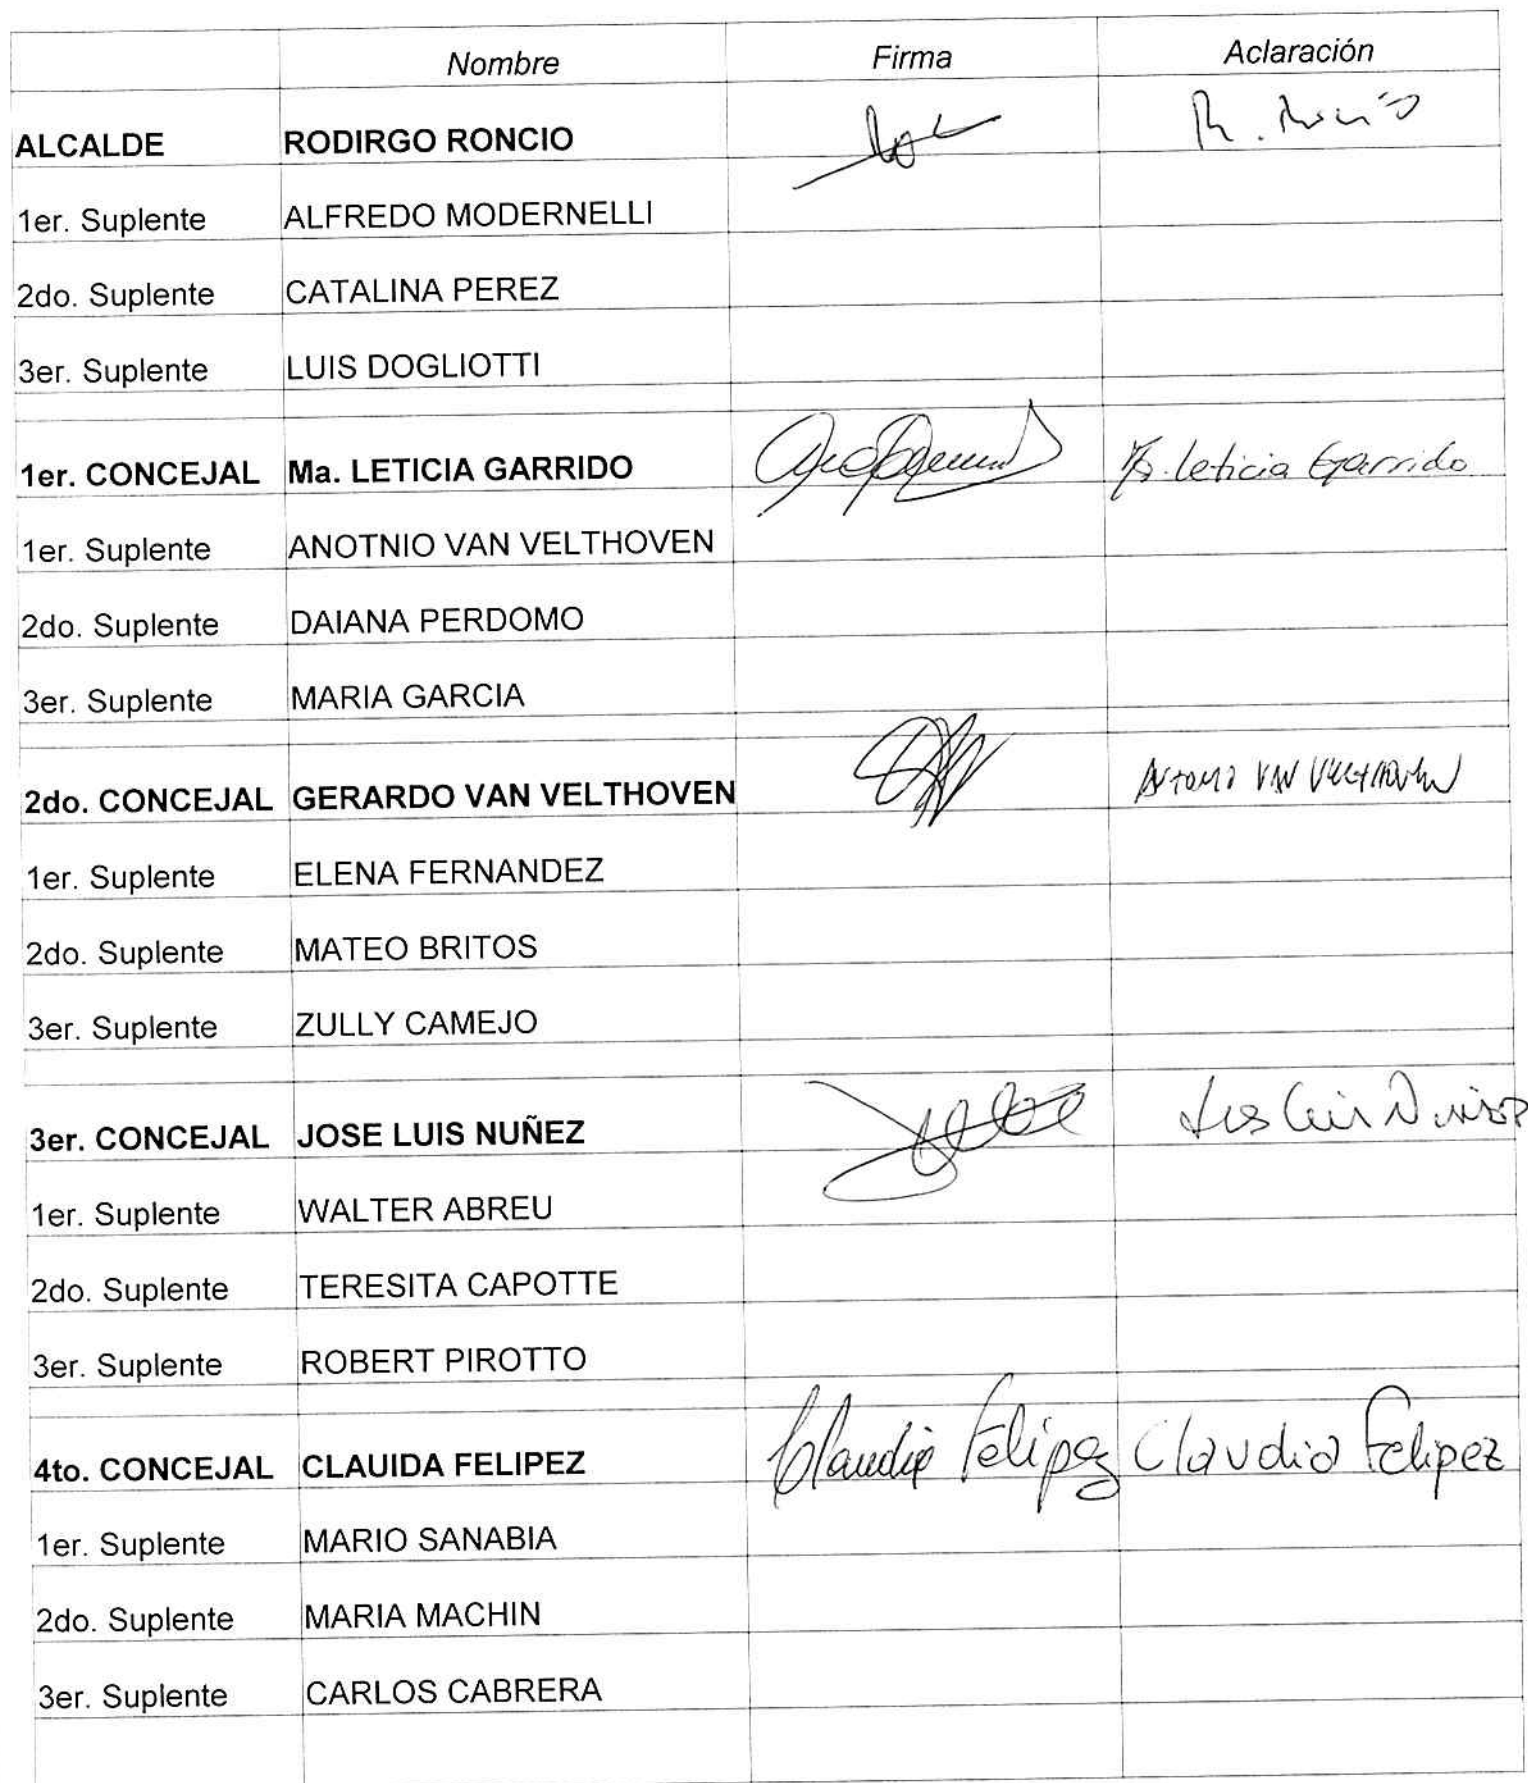 Nombre Firma Aclaración
ALCALDE RODIRGO RONCIO R. Roncio
1er. Suplente ALFREDO MODERNELLI
2do. Suplente CATALINA PEREZ
3er. Suplente LUIS DOGLIOTTI
1er. CONCEJAL Ma. LETICIA GARRIDO Ma. Leticia Garrido
1er. Suplente ANOTNIO VAN VELTHOVEN
2do. Suplente DAIANA PERDOMO
3er. Suplente MARIA GARCIA
2do. CONCEJAL GERARDO VAN VELTHOVEN ANTONIO VAN VELTHOVEN
1er. Suplente ELENA FERNANDEZ
2do. Suplente MATEO BRITOS
3er. Suplente ZULLY CAMEJO
3er. CONCEJAL JOSE LUIS NUÑEZ Luis
1er. Suplente WALTER ABREU
2do. Suplente TERESITA CAPOTTE
3er. Suplente ROBERT PIROTTO
4to. CONCEJAL CLAUIDA FELIPEZ Claudia Felipez Claudia Felipez
1er. Suplente MARIO SANABIA
2do. Suplente MARIA MACHIN
3er. Suplente CARLOS CABRERA